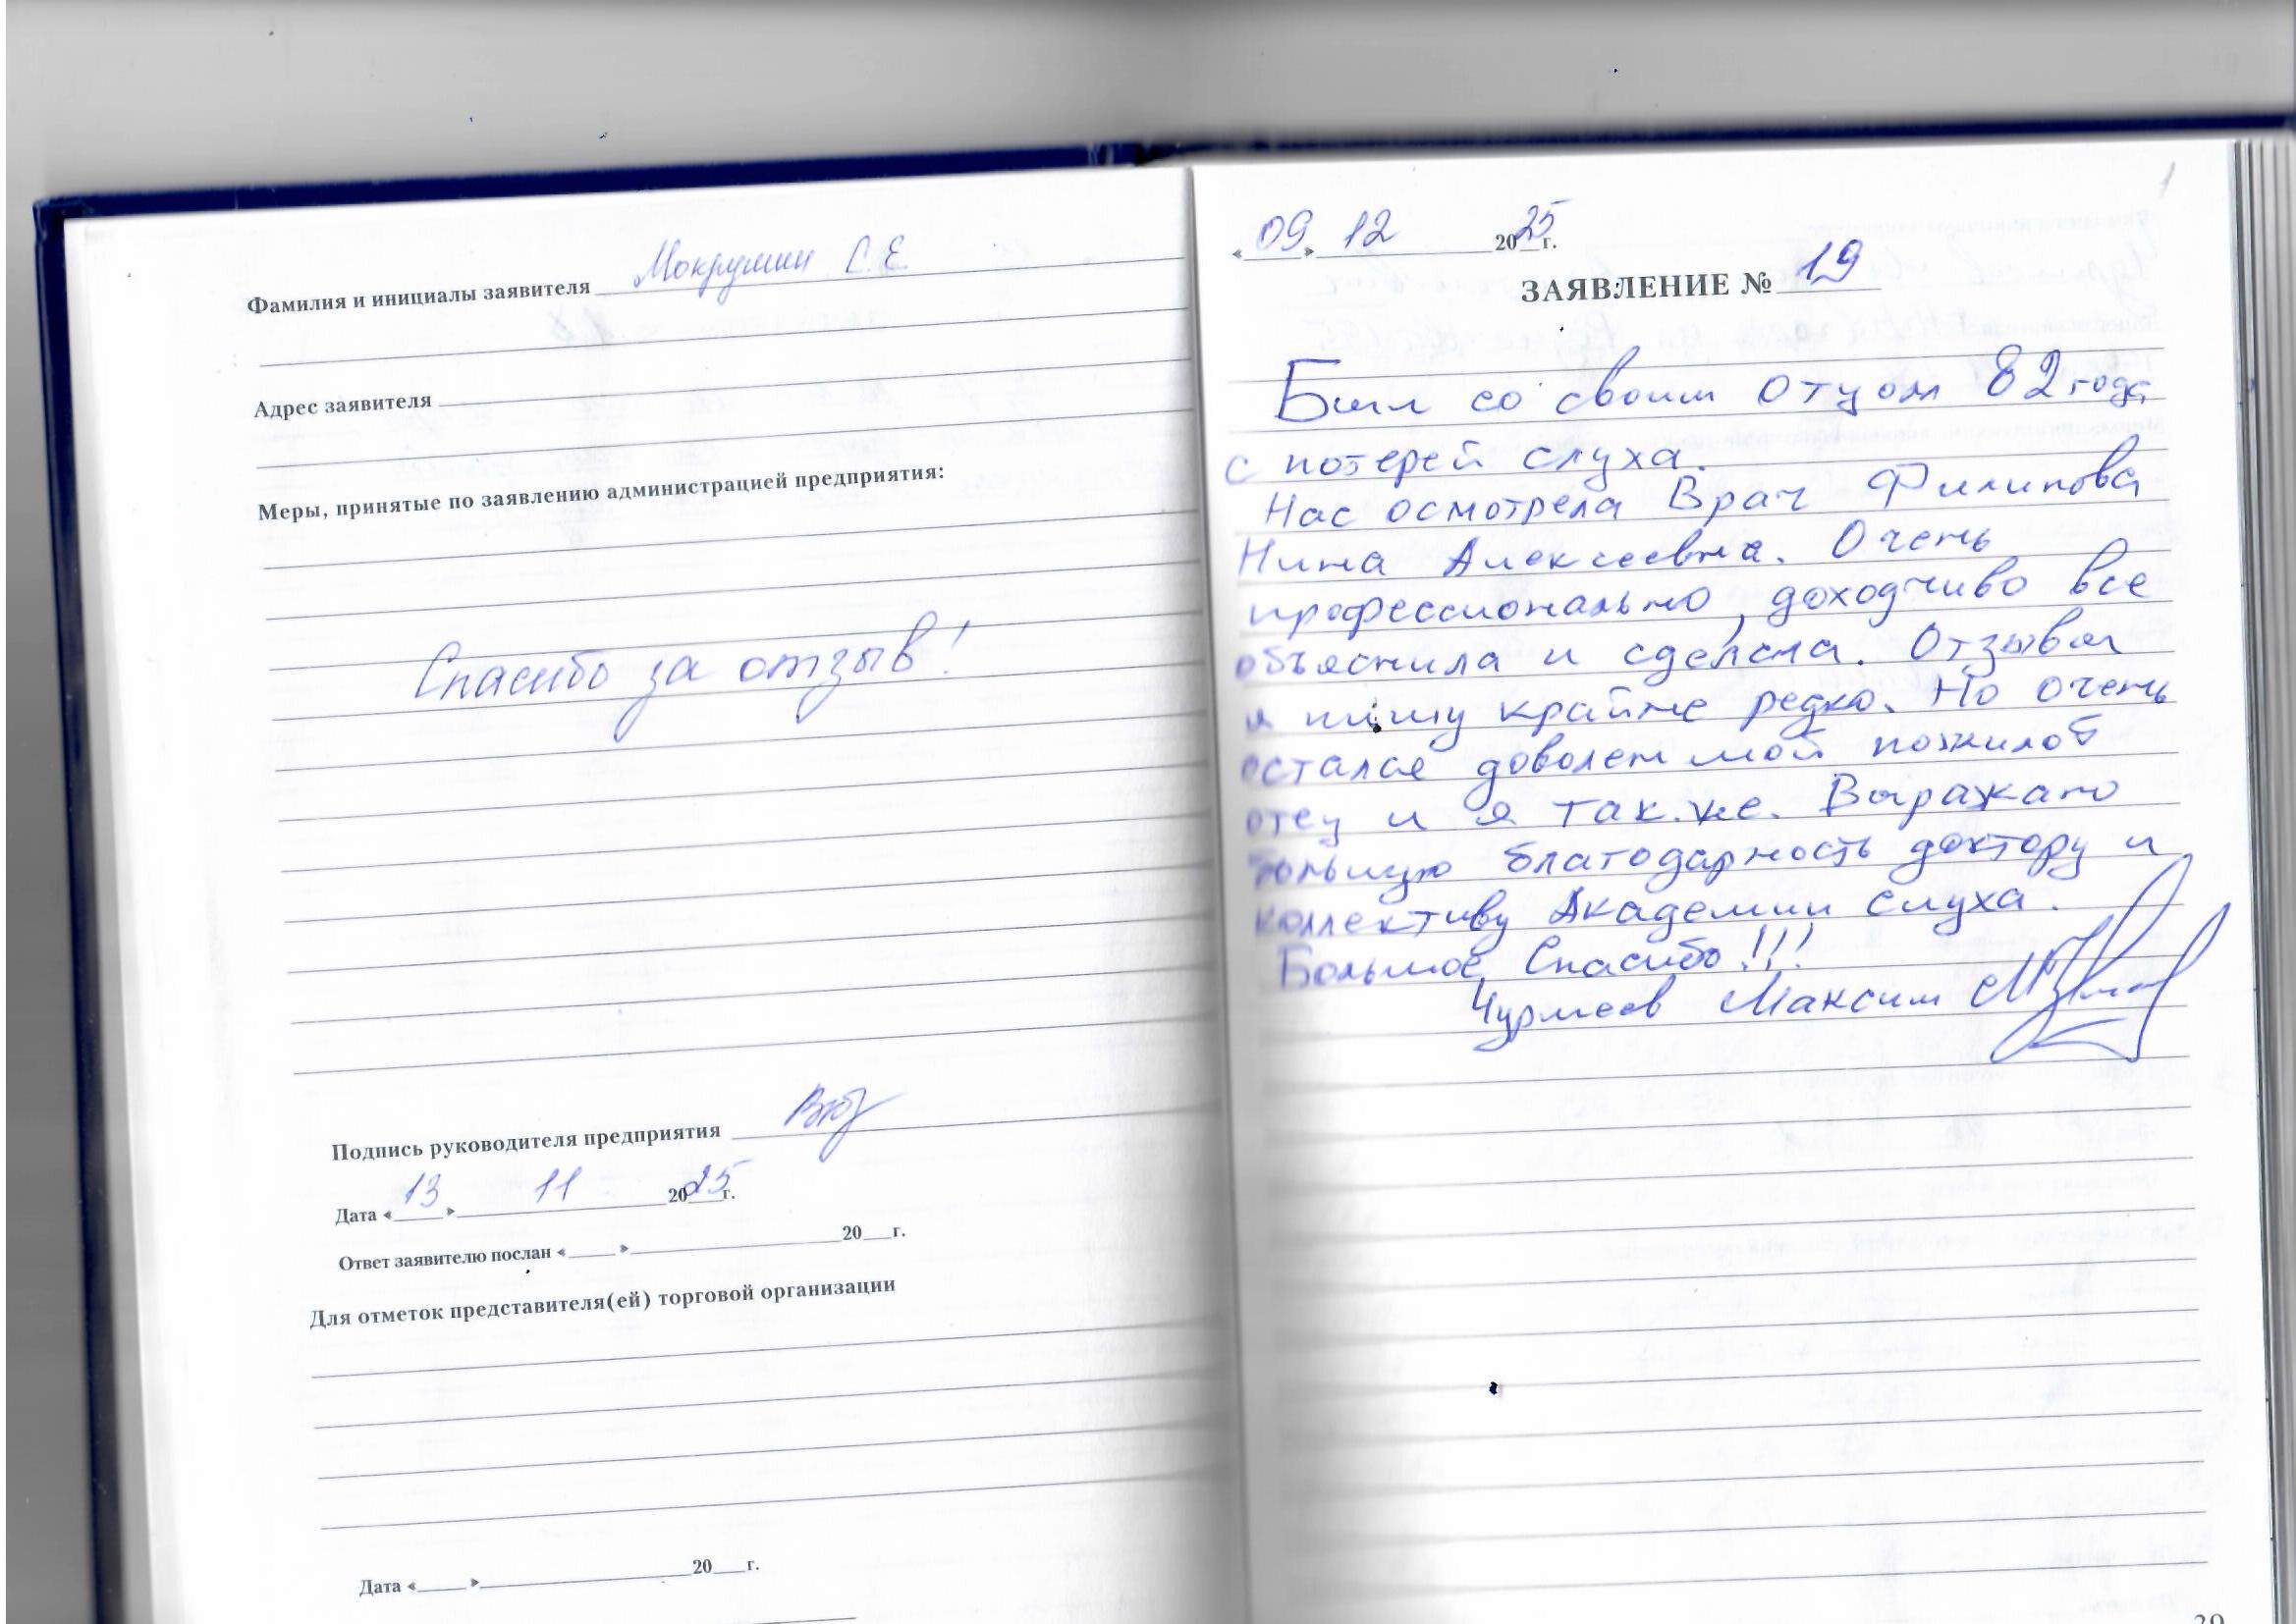 Фамилия и инициалы заявителя Мокрушин С. Е.
Адрес заявителя
Меры, принятые по заявлению администрацией предприятия:
Спасибо за отзыв!
Подпись руководителя предприятия
Дата «13» 11 2025 г.
Ответ заявителю послан «____» ____ 20__г.
Для отметок представителя(ей) торговой организации
Дата «____» ____ 20__г.
«09» 12 2025 г.
ЗАЯВЛЕНИЕ № 19
Был со своим отцом 82 года
с потерей слуха.
Нас осмотрела Врач Филипова
Нина Алексеевна. Очень
профессионально, доходчиво все
объяснила и сделала. Отзывы
я пишу крайне редко. Но очень
остался доволен мой пожилой
отец и я так.же. Выражаю
большую благодарность доктору и
коллективу Академии слуха.
Большое Спасибо!!!
Максим